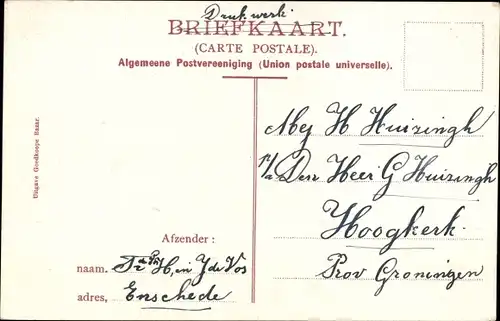 Drukwerk
BRIEFKAART.
(CARTE POSTALE).
Algemeene Postvereeniging (Union postale universelle).
Mej H Huizingh
p/a Den Heer G Huizingh
Hoogkerk.
Prov Groningen
Uitgave Goedkoope Bazar.
Afzender :
naam. H, en J de Vos
adres, Enschede